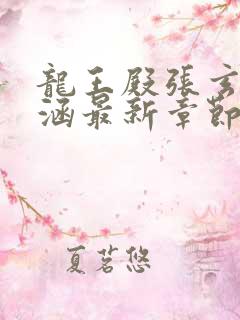 龍王殿張玄
涵最新章節
夏茗悠